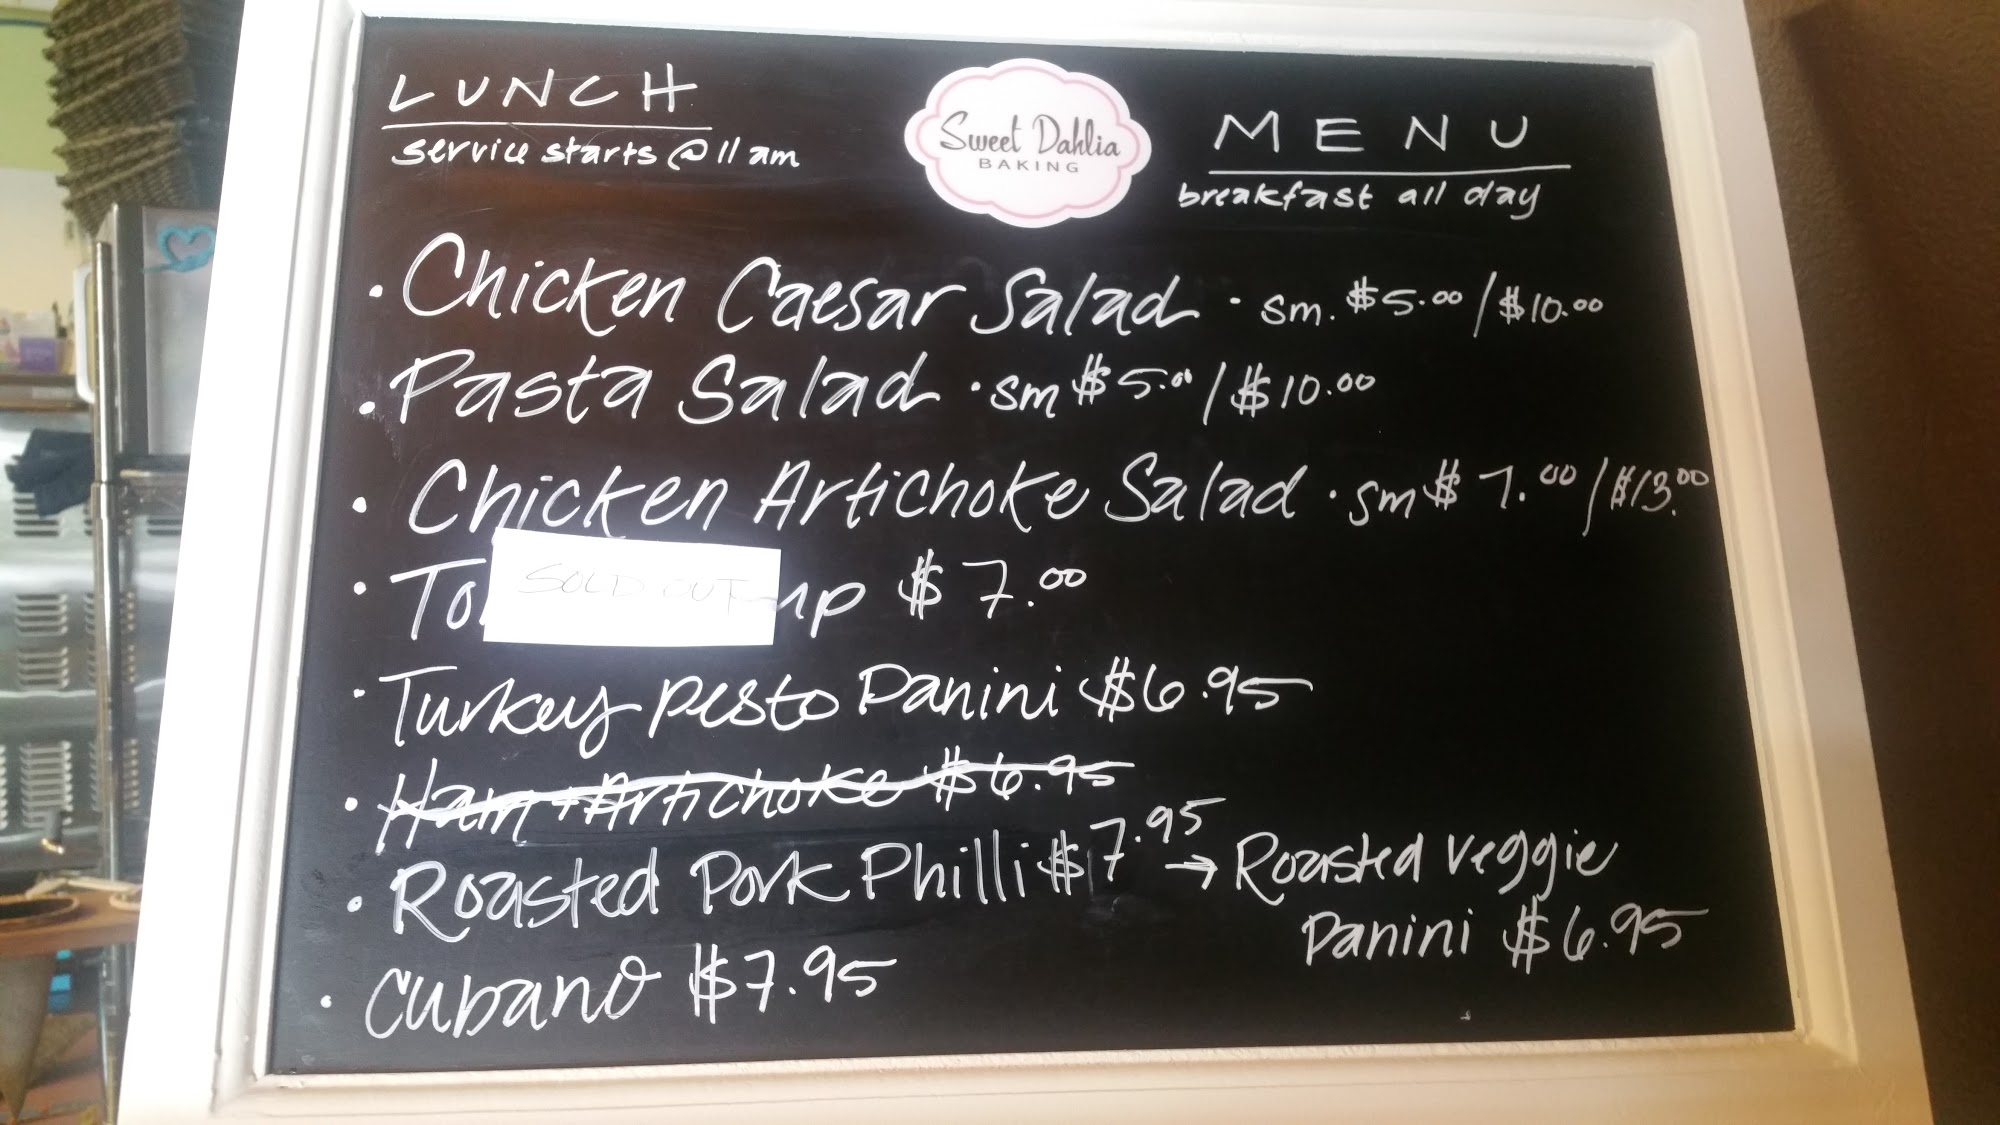 LUNCH
service starts @ 11 am
Sweet Dahlia
BAKING
MENU
breakfast all day
• Chicken Caesar Salad · sm. $5.00 / $10.00
• Pasta Salad · sm $5.00 / $10.00
• Chicken Artichoke Salad · sm $7.00 / $13.00
SOLD OUT
• $7.00
• Turkey pesto Panini $6.95
• Ham + Artichoke $6.95
• Roasted Pork Philli $7.95 → Roasted veggie
Panini $6.95
• Cubano $7.95